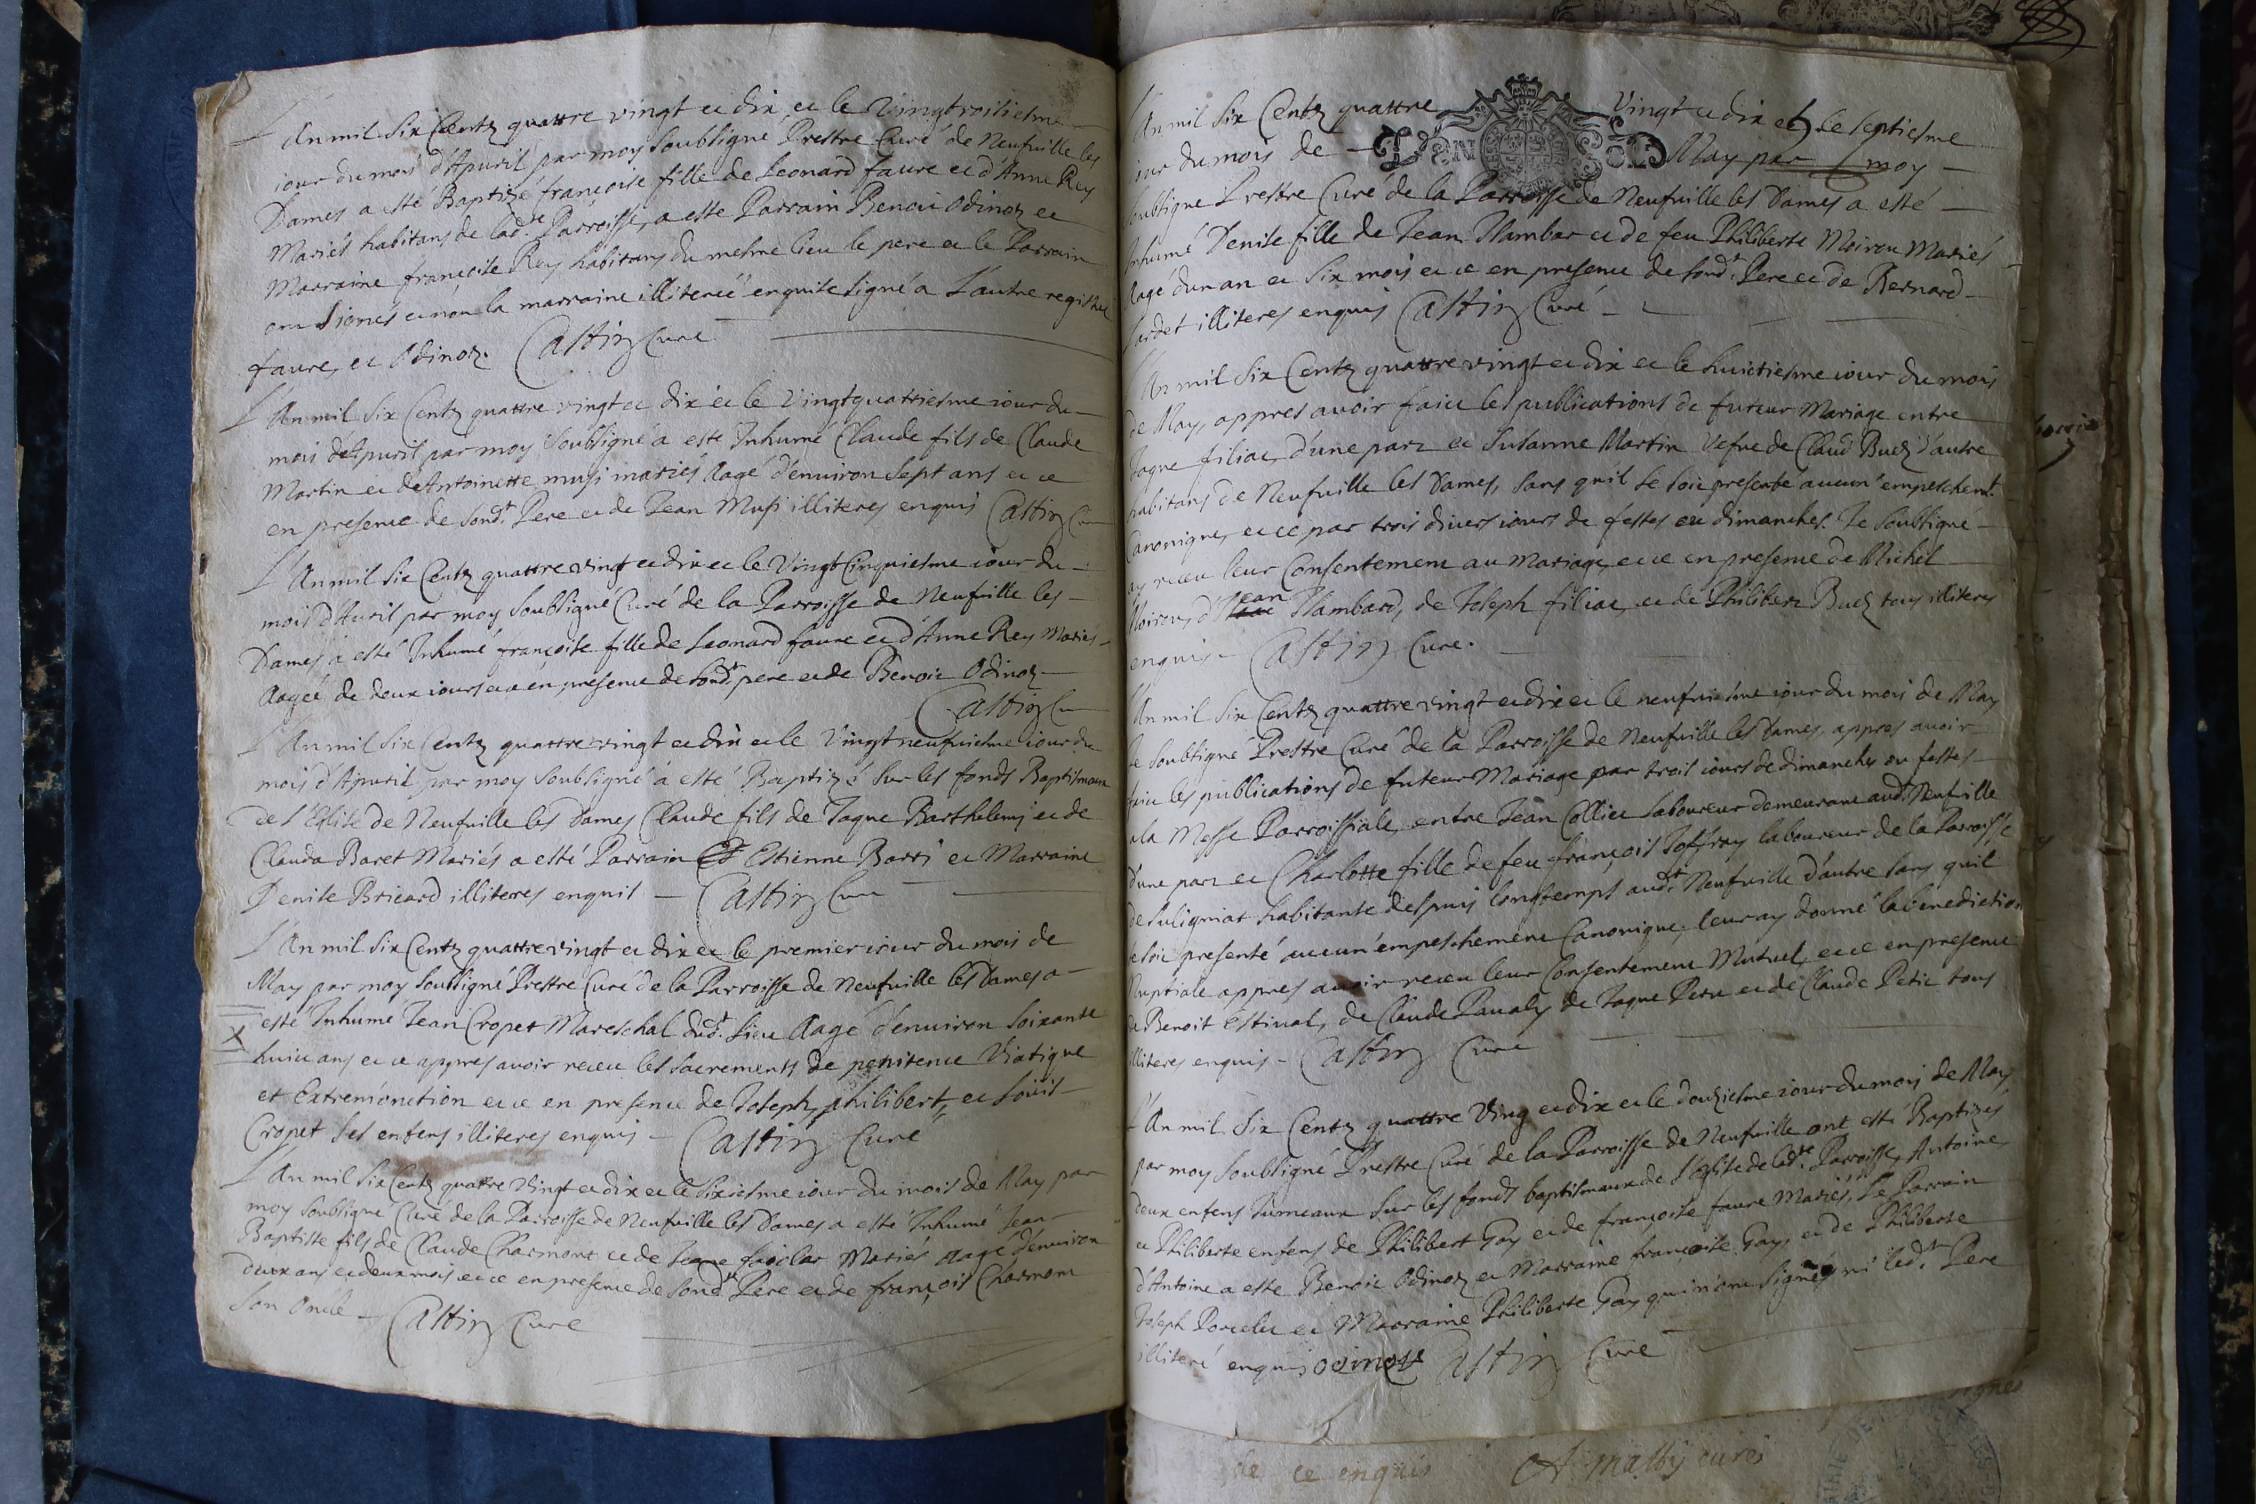 L'An mil Six Centz quattre vingt et dix et le Vingtroisiesme
iour du mois d'Apuril par moy Soubsigné Prestre Curé de Neufuille les
Dames a esté Baptizé françoise fille de Leonard faure et d'Anne Rey
Mariés habitans de lad.te Parroisse, a esté Parrain Benoit Odinoz et
Marraine françoise Rey habitans du mesme lieu le pere et le Parrain
ont signés et non la marraine illiterée enquise signé a L'autre registre
faure, et Odinoz. Castin Curé
L'An mil Six Centz quattre vingt et dix et le Vingtquattriesme iour du
mois d'Apuril par moy Soubsigné a esté Inhumé Claude fils de Claude
Martin et de Antoinette mussi mariés aagé d'enuiron sept ans et ce
en presence de sond.t Pere et de Jean Mussi illiteres enquis Castin Cu
L'An mil Six Centz quattre vingt et dix et le Vingt Cinquiesme iour du
mois d'Auril par moy Soubsigné Curé de la Parroisse de Neufuille les
Dames a esté Inhumé françoise fille de Leonard faure et d'Anne Rey Mariés
Aagée de deux iours et ce en presence de sond.t pere et de Benoit Odinoz
Castin Cu
L'An mil Six Centz quattre vingt et dix et le Vingt neufuiesme iour du
mois d'Apuril par moy Soubsigné a esté Baptizé Sur les fonds Baptismaux
de l'Eglise de Neufuille les Dames Claude fils de Jaque Barthelemy et de
Clauda Baret Mariés a esté Parrain Estienne Barri et Marraine
Denise Bricard illiteres enquis Castin Curé
L'An mil Six Centz quattre vingt et dix et le premier iour du mois de
May par moy Soubsigné Prestre Curé de la Parroisse de Neufuille les Dames a
X esté Inhumé Jean Cropet Mareschal dud.t Lieu Aagé d'enuiron Soixante
huict ans et ce appres avoir receu les Sacrements de penitence Viatique
et Extremonction et ce en presence de Joseph, philibert, et Louis
Cropet ses enfens illiteres enquis Castin Curé
L'An mil Six Centz quattre Vingt et dix et le Sixiesme iour du mois de May par
moy Soubsigné Curé de la Parroisse de Neufuille les Dames a esté Inhumé Jean
Baptiste fils de Claude Charmont et de Mariés Aagé d'enuiron
deux ans et deux mois et ce en presence de Sond.t Pere et de françois Charmont
Son Oncle Castin Curé
L'An mil Six Centz quattre Vingt et dix et le Septiesme
iour du mois de May par moy
Soubsigné Prestre Curé de la Parroisse de Neufuille les Dames a esté
Inhumé Denise fille de Jean Nambar et de feu Philiberte Moiron Mariés
Aagé d'un an et Six mois et ce en presence de Sond.t Pere et de Bernard
illiteres enquis Castin Curé
L'An mil Six Centz quattre vingt et dix et le huictiesme iour du mois
de May, appres auoir faict les publications de futeur Mariage entre
Jaque filiat, d'une part et Susanne Martin Vefue de Claud d'autre
habitans de Neufuille les Dames, Sans qu'il Se soit presenté aucun empeschem.t
Canonique, et ce par trois diuers iours de festes ou dimanches. Je Soubsigné
ay receu leur Consentement au Mariage et ce en presence de Michel
Moiron, d' Jean Nambard, de Joseph filiat, et de Philibert tous illiteres
enquis Castin Cure.
L'An mil Six Centz quattre vingt et dix et le neufuiesme iour du mois de May
Je Soubsigné Prestre Curé de la Parroisse de Neufuille les Dames, appres auoir
faict les publications de futeur Mariage par trois iours de dimanches ou festes
a la Messe Parroissiale, entre Jean Collier laboureur demeurant aud.t Neufuille
d'une part et Charlotte fille de feu françois Joffray laboureur de la Parroisse
de Suligniat habitante despuis longtemps aud.t Neufuille d'autre Sans qu'il
Se soit presenté aucun empeschement Canonique, leur ay donné la benediction
Nuptiale appres auoir receu leur Consentement Mutuel, et ce en presence
de Benoit Estiual, de Claude de Jaque et de Claude Petit tous
illiteres enquis Castin Curé
L'An mil Six Centz quattre Ving et dix et le douziesme iour du mois de May,
par moy Soubsigné Prestre Curé de la Parroisse de Neufuille ont esté Baptizés
deux enfens Jumeaux Sur les fonds baptismaux de l'Eglise de lad.te Parroisse, Antoine
et Philiberte enfens de Philibert Gay et de françoise faure Mariés, Le Parrain
d'Antoine a esté Benoit Odinoz et Marraine françoise Gay, et de Philiberte
Joseph et Marraine Philiberte Gay qui n'ont Signés ni led.t Pere
illiteré enquis Odinoz Castin Curé
de ce enquis